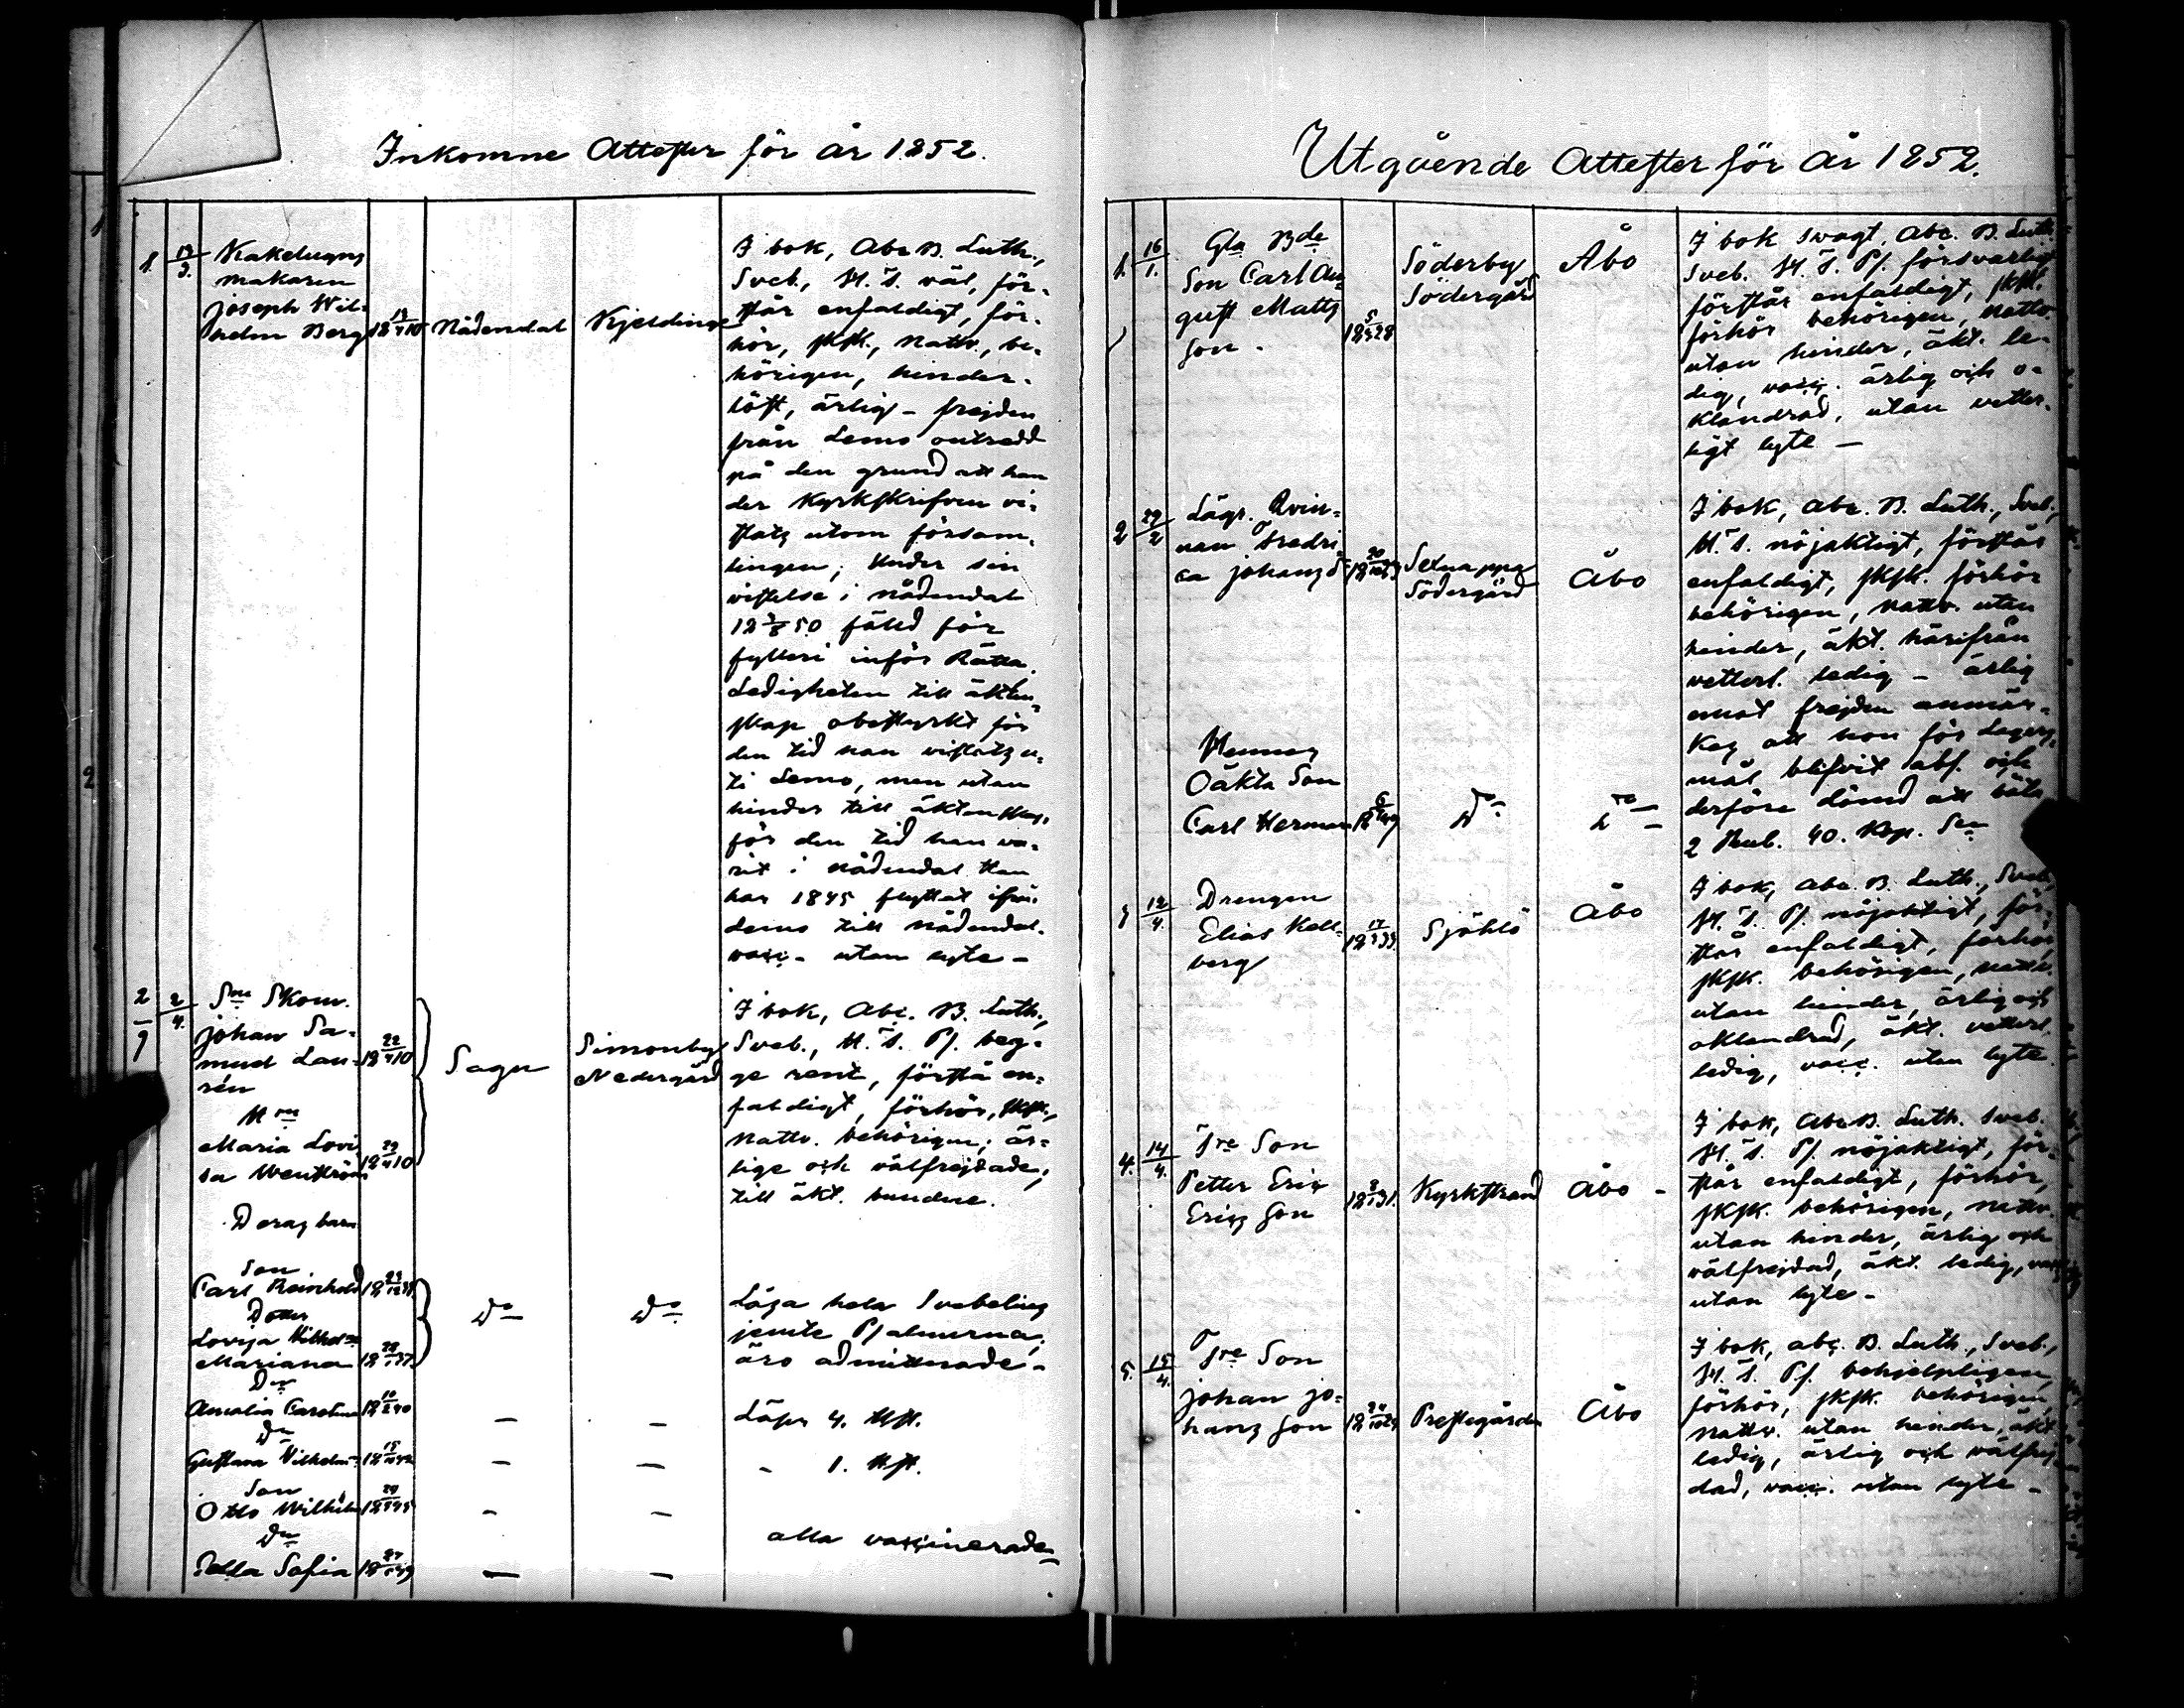 Inkomne Attester för år 1852.
1. 13/3. Kakelugns
makaren
Joseph Wil-
helm Berg 18 10 Nådendal Kjeldinge
I bok, Abc B. Luth.,
Sveb., H. T. väl, för-
står enfaldigt, för-
hör, skft., nattv., be-
hörigen, hinder-
löst, ärlig - frejden
från Lemo outredd
på den grund att han
der kyrkskrifven vi-
stats utom försam-
lingen; under sin
vistelse i Nådendal
18 50 fälld för
fylleri inför Rätta.
Ledigheten till äkten-
skap obestyrkt för
den tid han vistats u-
ti Lemo, men utan
hinder till äktenskap
för den tid han va-
rit i Nådendal. Han
har 1845 flyttat ifrån
Lemo till Nådendal.
vacc. utan lyte -
2 2/4. Skom.
Johan Sa-
muel Lau-
rén 18 22/4 10 Sagu Simonby
Nedergård
Maria Lovi
sa Wenström 18 29/4 10
Deras barn
I bok, Abc. B. Luth.,
Sveb., H. T. Ps. beg-
ge rent, förstå en-
faldigt, förhör, skft.,
nattv. behörigen; är-
lige och välfrejdade;
till äkt. bundne.
Son
Carl Reinhold 18
Dotter
Lovisa
Mariana 18 37 Do Do
Läsa hela Svebelius
jemte Psalmerna;
äro admitterade -
Dr
Amalia Carolina 18 40 - - Läser 4. Hst.
Dr
Gustava Wilhelm 18 42 - - - 1. Hst.
Son
Otto Wilhelm 18 45 - -
Dr
Sofia 18 49 - - alla vaccinerade
Utgående Attester för år 1852.
1. 16/1. Gla Bde
Son Carl Au-
gust Matts
Son - 18 28 Söderby
Södergård Åbo
I bok svagt, Abc. B. Luth.
Sveb. H. T. Ps. försvarligt
förstår enfaldigt, skft.
förhör behörigen, nattv.
utan hinder, äkt. le-
dig, vacc. ärlig och o-
klandrad, utan vetter-
ligt lyte -
2 29/2 Lägr. Qvin-
nan Fredri
ca Johans dr 18
Södergård Åbo
I bok, Abc. B. Luth., Sveb.,
H. T. nöjaktigt, förstår
enfaldigt, skft. förhör
behörigen, nattv. utan
hinder, äkt. härifrån
vetterl. ledig - ärlig
emot frejden anmär-
kes att hon för lägers-
mål blifvit abs. och
derföre dömd att böta
2 Rub. 40. Kop. Sr
Hennes
Oäkta Son
Carl Herman 18 49 Do Do
3 12/4. Drengen
Elias Kell-
berg 18 Sjöhlö Åbo
I bok, Abc. B. Luth., Sveb.
H. T. Ps. nöjaktigt, för-
står enfaldigt, förhör,
skft. behörigen, nattv.
utan hinder, ärlig och
oklandrad, äkt. vetterl.
ledig, vacc. utan lyte
4. 14/4. Tre Son
Petter Eric
Erics Son 18 31. Kyrkstrand Åbo -
I bok, Abc B. Luth. Sveb.
H. T. Ps. nöjaktigt, för-
står enfaldigt, förhör,
skft. behörigen, nattv.
utan hinder, ärlig och
välfrejdad, äkt. ledig, vacc
utan lyte -
5. 15/4. Tre Son
Johan Jo-
hans Son 18 29 Prestegården Åbo
I bok, abc. B. Luth., Sveb.,
H. T. Ps. behjelpligen,
förhör, skft. behörigen,
nattv. utan hinder, äkt
ledig, ärlig och välfrej
dad, vacc. utan lyte -